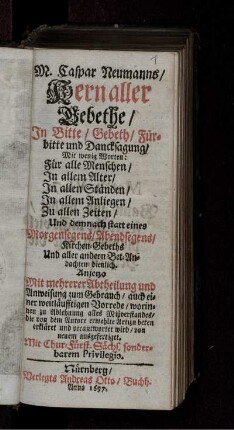 1
M. Caspar Neumanns/
Kern aller
Gebethe/
In Bitte/ Gebeth/ Für-
bitte und Dancksagung/
Mit wenig Worten:
Für alle Menschen/
In allem Alter/
In allen Ständen/
In allem Anliegen/
Zu allen Zeiten/
Und demnach statt eines
Morgensegens/ Abendsegens/
Kirchen-Gebeths
Und aller andern Bet-An-
dachten dienlich.
Anjetzo
Mit mehrerer Abtheilung und
Anweisung zum Gebrauch/ auch ei-
ner weitläufftigen Vorrede/ worin-
nen zu Ablehnung alles Mißverstandes/
die von dem Autore erwehlte Art zu beten
erkläret und verantwortet wird/ von
neuem ausgefertiget.
Mit Chur-Fürst. Sächs. sonder-
barem Privilegio.
Nürnberg/
Verlegts Andreas Otto/ Buchh.
Anno 1697.